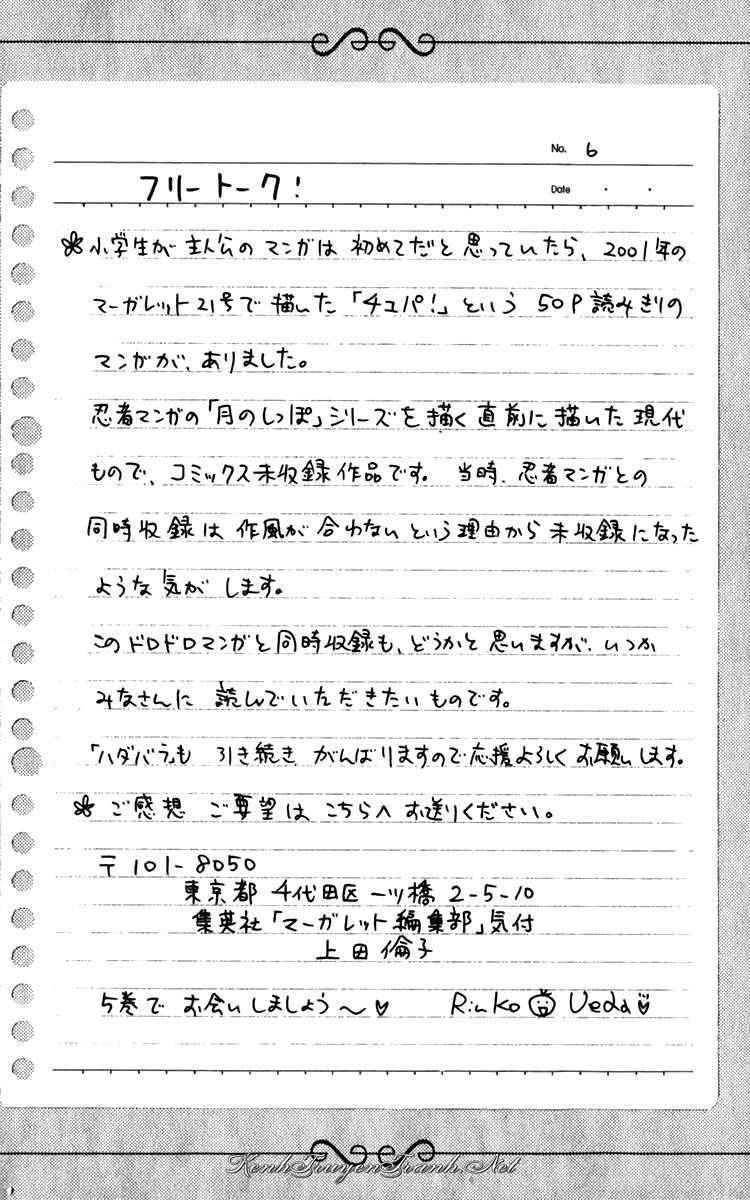 No. 6
フリートーク!
Date ・ ・
✽小学生が主人公のマンガは 初めてだと思っていたら、2001年の
マーガレット21号で描いた「チュパ!」という 50P読みきりの
マンガが、ありました。
忍者マンガの「月のしっぽ」シリーズを描く直前に描いた現代
もので、コミックス未収録作品です。 当時、忍者マンガとの
同時収録は 作風が合わないという理由から 未収録になった
ような気がします。
このドロドロマンガと同時収録も、どうかと思いますが、いつか
みなさんに 読んでいただきたいものです。
「ハダバラ」も 引き続き がんばりますので応援よろしくお願いします。
✽ ご感想 ご要望は こちらへ お送りください。
〒101-8050
東京都 千代田区 一ツ橋 2-5-10
集英社「マーガレット編集部」気付
上田倫子
5巻で お会いしましょう〜♡ Rinko Ueda
KenhTruyenTranh.Net